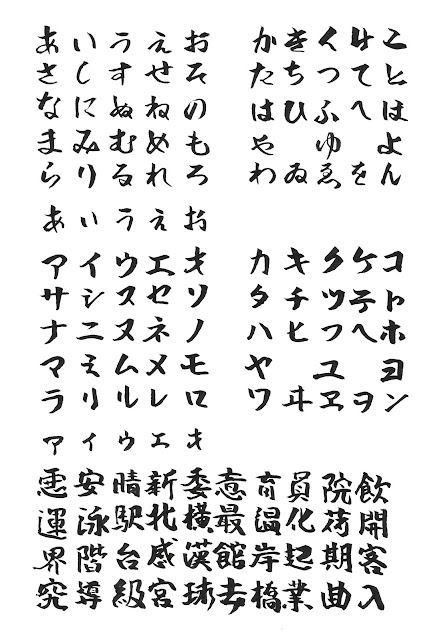 あ い う え お か き く け こ
さ し す せ そ た ち つ て と
な に ぬ ね の は ひ ふ へ ほ
ま み む め も や ゆ よ
ら り る れ ろ わ ゐ ゑ を ん
ぁ ぃ ぅ ぇ ぉ
ア イ ウ エ オ カ キ ク ケ コ
サ シ ス セ ソ タ チ ツ テ ト
ナ ニ ヌ ネ ノ ハ ヒ フ ヘ ホ
マ ミ ム メ モ ヤ ユ ヨ
ラ リ ル レ ロ ワ ヰ ヱ ヲ ン
ァ ィ ゥ ェ ォ
悪安晴新委意育員院飲
運泳駅北横最温化荷開
界階台感漢館岸起期客
究導級宮球去橋業曲入